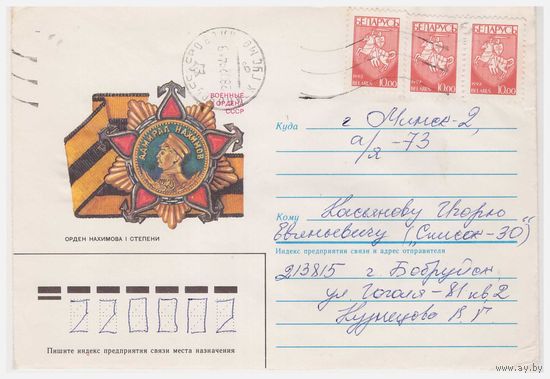 БЕЛАРУСЬ БЕЛАРУСЬ БЕЛАРУСЬ
1992 BELARUS 10.00 1992 BELARUS 10.00 1992 BELARUS 10.00
ВОЕННЫЕ
ОРДЕНА
СССР
АДМИРАЛ НАХИМОВ
ОРДЕН НАХИМОВА I СТЕПЕНИ
Куда
г Минск-2,
а/я -73
Кому
Касьянову Игорю
Евгеньевичу ("Список-30")
Индекс предприятия связи и адрес отправителя
213815 г. Бобруйск
ул Гоголя-81 кв,2
Кузнецова В Г
220002
Пишите индекс предприятия связи места назначения
www.ay.by